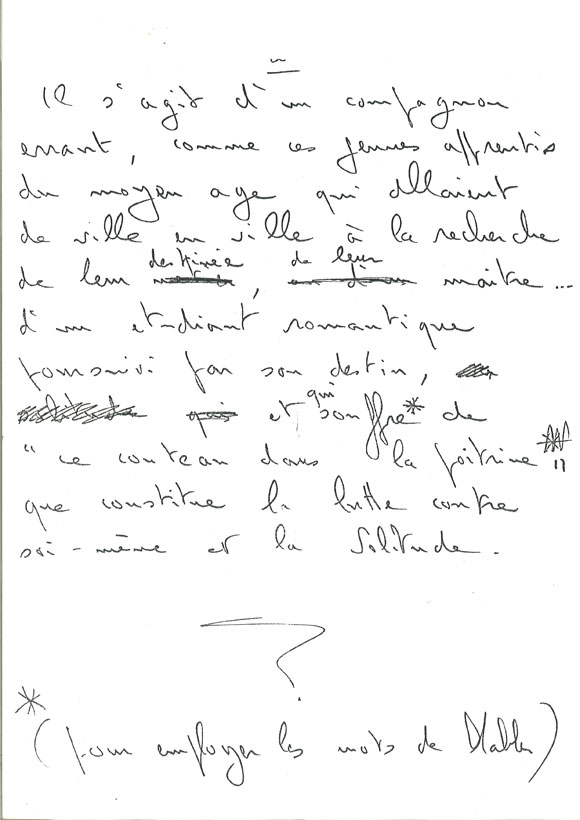 Il s'agit d'un compagnon
errant, comme ces jeunes apprentis
du moyen age qui allaient
de ville en ville à la recherche
de leur destinée, de leur maître...
d'un étudiant romantique
poursuivi par son destin,
et qui souffre* de
"ce couteau dans la poitrine"
que constitue la lutte contre
soi-même et la solitude.
?
*
(pour employer les mots de Mahler)